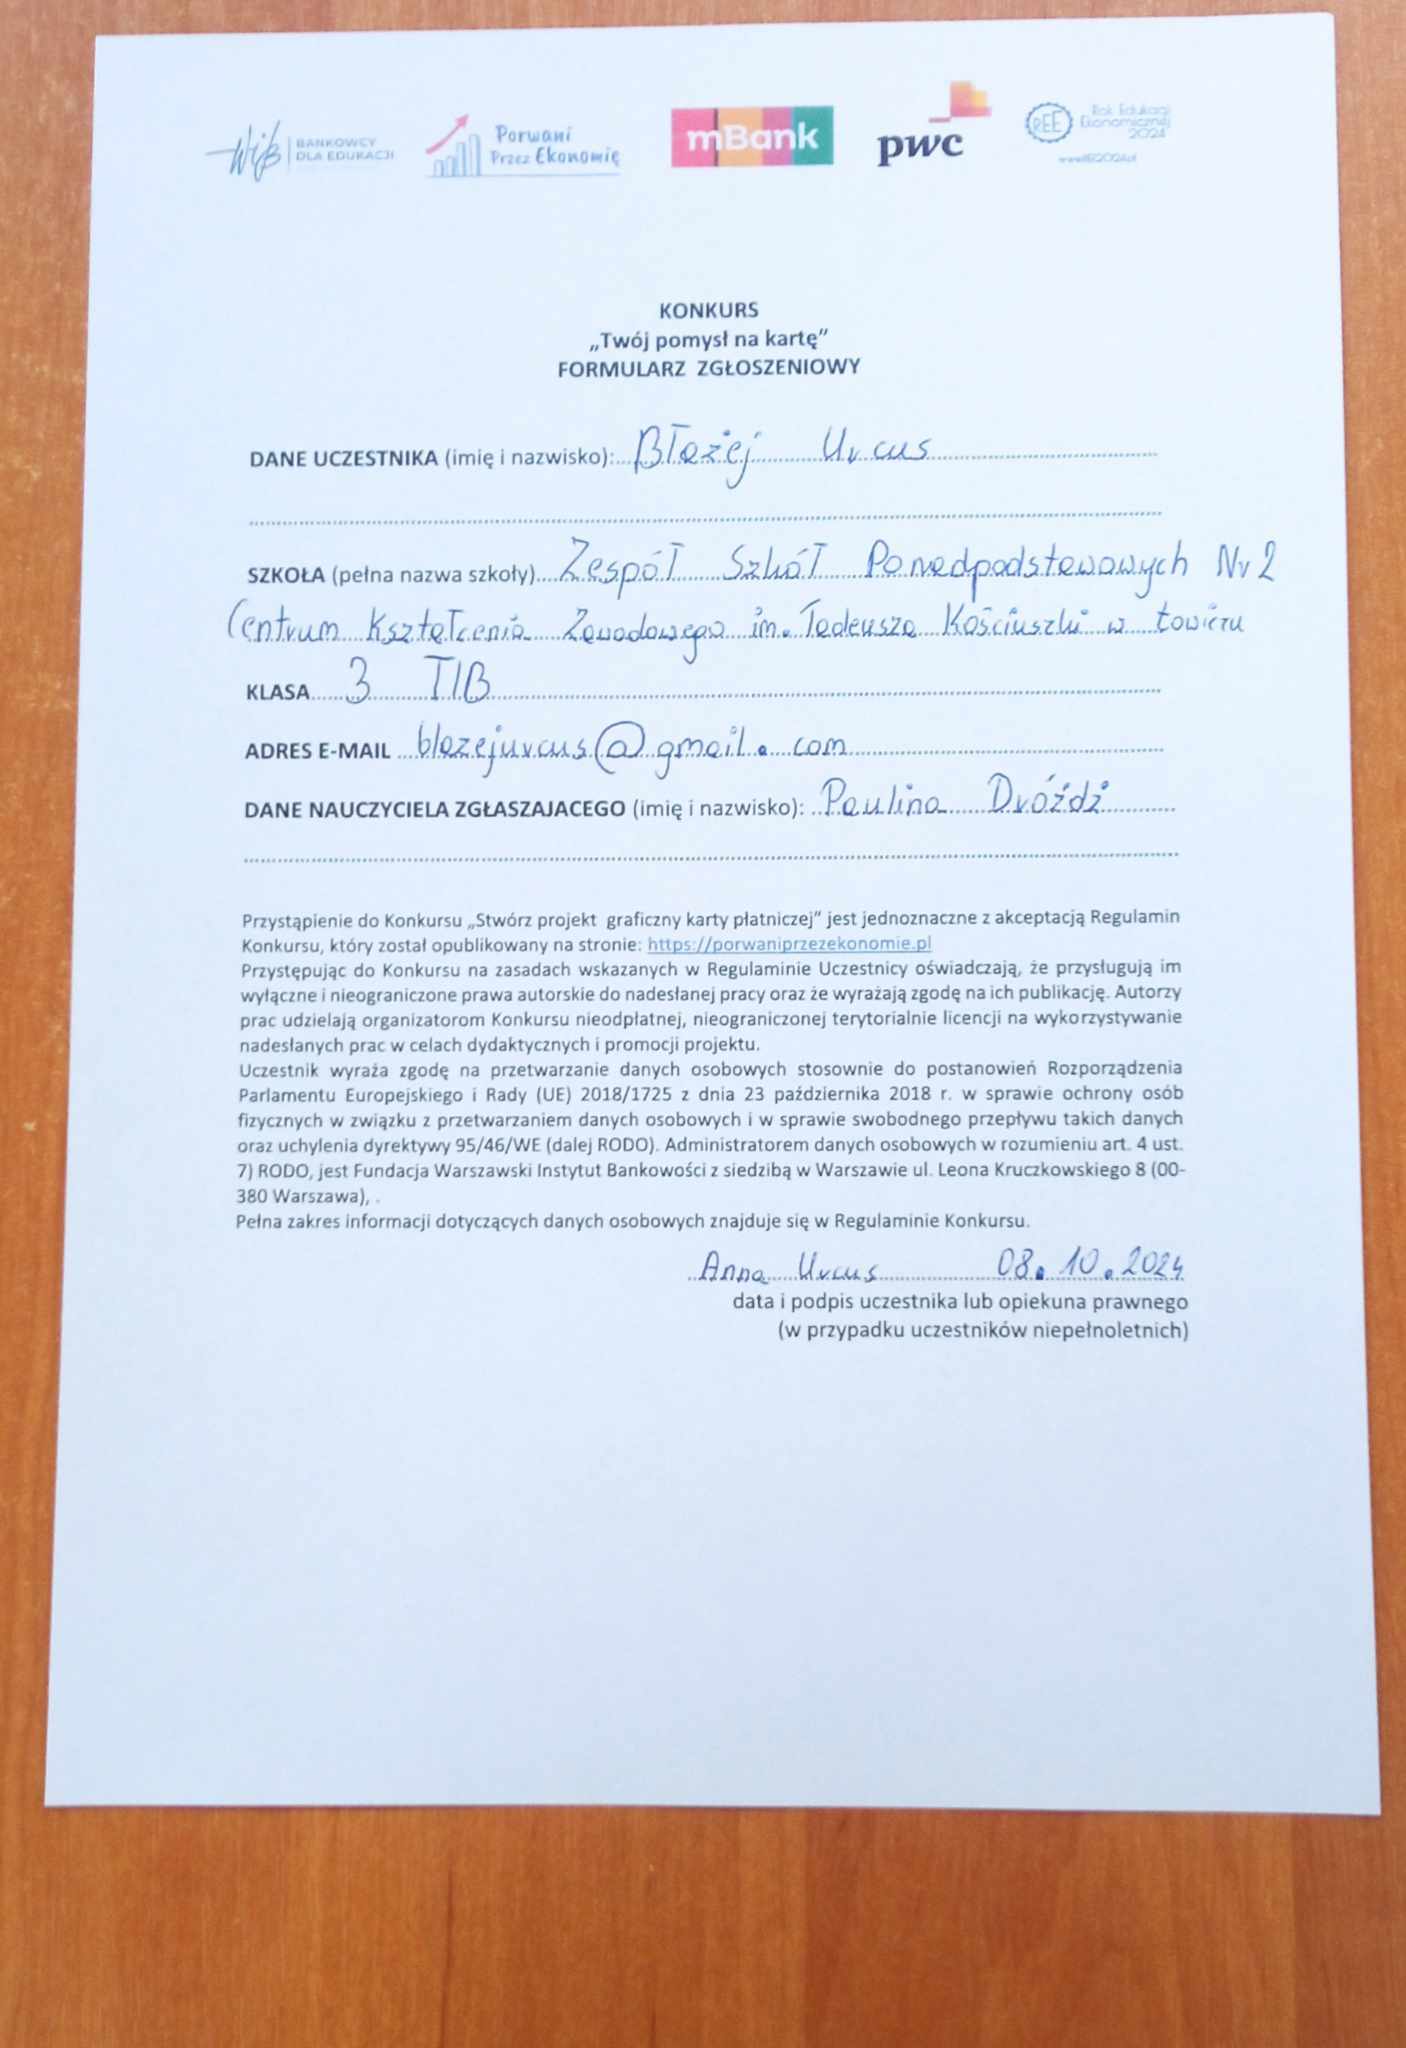 BANKOWCY
DLA EDUKACJI
Porwani
Przez Ekonomię
mBank
pwc
REE
Rok Edukacji
Ekonomicznej
2024
KONKURS
„Twój pomysł na kartę”
FORMULARZ ZGŁOSZENIOWY
DANE UCZESTNIKA (imię i nazwisko): Błażej Urcus
SZKOŁA (pełna nazwa szkoły) Zespół Szkół Ponadpodstawowych Nr 2
Centrum Kształcenia Zawodowego im. Tadeusza Kościuszki w Łowiczu
KLASA 3 TIB
ADRES E-MAIL blazejurcus@gmail.com
DANE NAUCZYCIELA ZGŁASZAJACEGO (imię i nazwisko): Paulina Dróżdż
Przystąpienie do Konkursu „Stwórz projekt graficzny karty płatniczej” jest jednoznaczne z akceptacją Regulamin
Konkursu, który został opublikowany na stronie: https://porwaniprzezekonomie.pl
Przystępując do Konkursu na zasadach wskazanych w Regulaminie Uczestnicy oświadczają, że przysługują im
wyłączne i nieograniczone prawa autorskie do nadesłanej pracy oraz że wyrażają zgodę na ich publikację. Autorzy
prac udzielają organizatorom Konkursu nieodpłatnej, nieograniczonej terytorialnie licencji na wykorzystywanie
nadesłanych prac w celach dydaktycznych i promocji projektu.
Uczestnik wyraża zgodę na przetwarzanie danych osobowych stosownie do postanowień Rozporządzenia
Parlamentu Europejskiego i Rady (UE) 2018/1725 z dnia 23 października 2018 r. w sprawie ochrony osób
fizycznych w związku z przetwarzaniem danych osobowych i w sprawie swobodnego przepływu takich danych
oraz uchylenia dyrektywy 95/46/WE (dalej RODO). Administratorem danych osobowych w rozumieniu art. 4 ust.
7) RODO, jest Fundacja Warszawski Instytut Bankowości z siedzibą w Warszawie ul. Leona Kruczkowskiego 8 (00-
380 Warszawa), .
Pełna zakres informacji dotyczących danych osobowych znajduje się w Regulaminie Konkursu.
Anna Urcus 08.10.2024
data i podpis uczestnika lub opiekuna prawnego
(w przypadku uczestników niepełnoletnich)